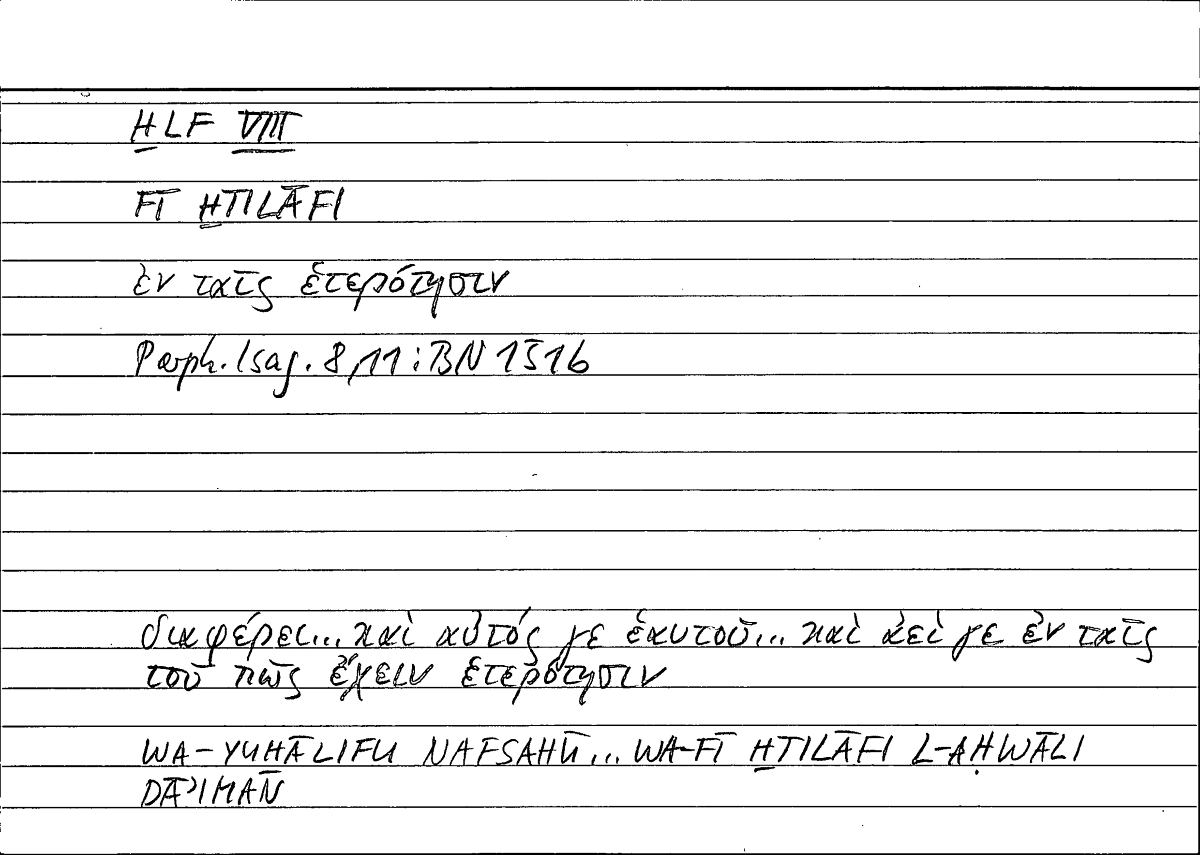 ḪLF VIII
FĪ ḪTILĀFI
ἐν ταῖς ἑτερότησιν
Porph. Isag. 8,11 : BN 1516
διαφέρει... καὶ αὐτός γε ἑαυτοῦ... καὶ ἀεί γε ἐν ταῖς
τοῦ πῶς ἔχειν ἑτερότησιν
WA-YUHĀLIFU NAFSAHŪ... WA-FĪ ḪTILĀFI L-AḤWĀLI
DĀʾIMAN